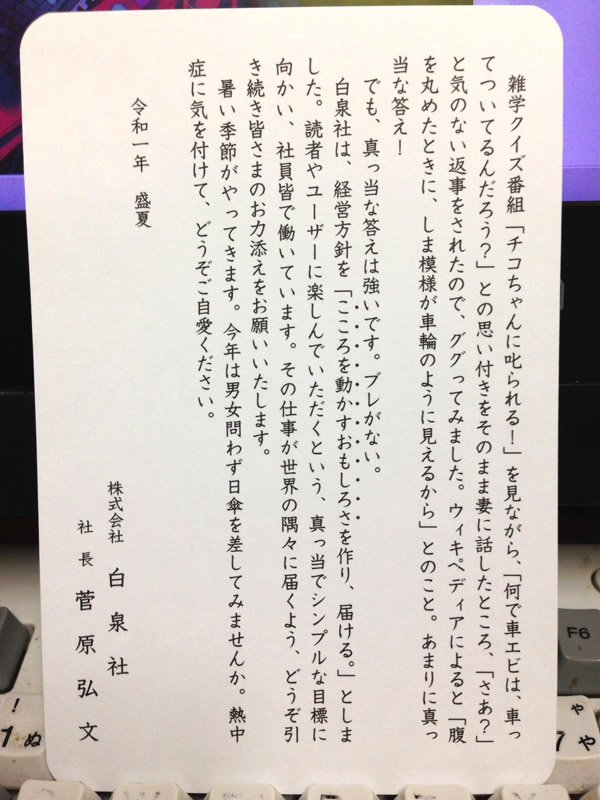 雑学クイズ番組「チコちゃんに叱られる！」を見ながら、「何で車エビは、車っ
てついてるんだろう？」との思い付きをそのまま妻に話したところ、「さあ？」
と気のない返事をされたので、ググってみました。ウィキペディアによると「腹
を丸めたときに、しま模様が車輪のように見えるから」とのこと。あまりに真っ
当な答え！
でも、真っ当な答えは強いです。ブレがない。
白泉社は、経営方針を「こころを動かすおもしろさを作り、届ける。」としま
した。読者やユーザーに楽しんでいただくという、真っ当でシンプルな目標に
向かい、社員皆で働いています。その仕事が世界の隅々に届くよう、どうぞ引
き続き皆さまのお力添えをお願いいたします。
暑い季節がやってきます。今年は男女問わず日傘を差してみませんか。熱中
症に気を付けて、どうぞご自愛ください。
令和一年　盛夏
株式会社　白泉社
社長　菅原弘文
F6
!
1 ぬ
や
7 や